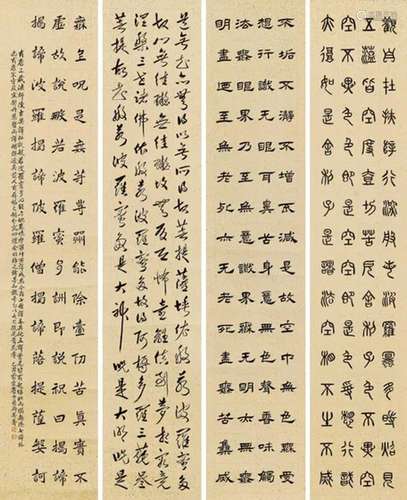 觀自在菩薩行深般若波羅蜜多時照見
五蘊皆空度一切苦厄舍利子色不異空
空不異色色即是空空即是色受想行識
亦復如是舍利子是諸法空相不生不滅
不垢不淨不增不減是故空中無色無受
想行識無眼耳鼻舌身意無色聲香味觸
法無眼界乃至無意識界無無明亦無無
明盡乃至無老死亦無老死盡無苦集滅
道無智亦無得以無所得故菩提薩埵依般若波羅蜜多
故心無罣礙無罣礙故無有恐怖遠離顛倒夢想究竟
涅槃三世諸佛依般若波羅蜜多故得阿耨多羅三藐三
菩提故知般若波羅蜜多是大神咒是大明咒是
無上呪是無等等呪能除壹切苦真實不
虛故說般若波羅蜜多呪即說呪曰揭諦
揭諦波羅揭諦波羅僧揭諦菩提薩婆訶